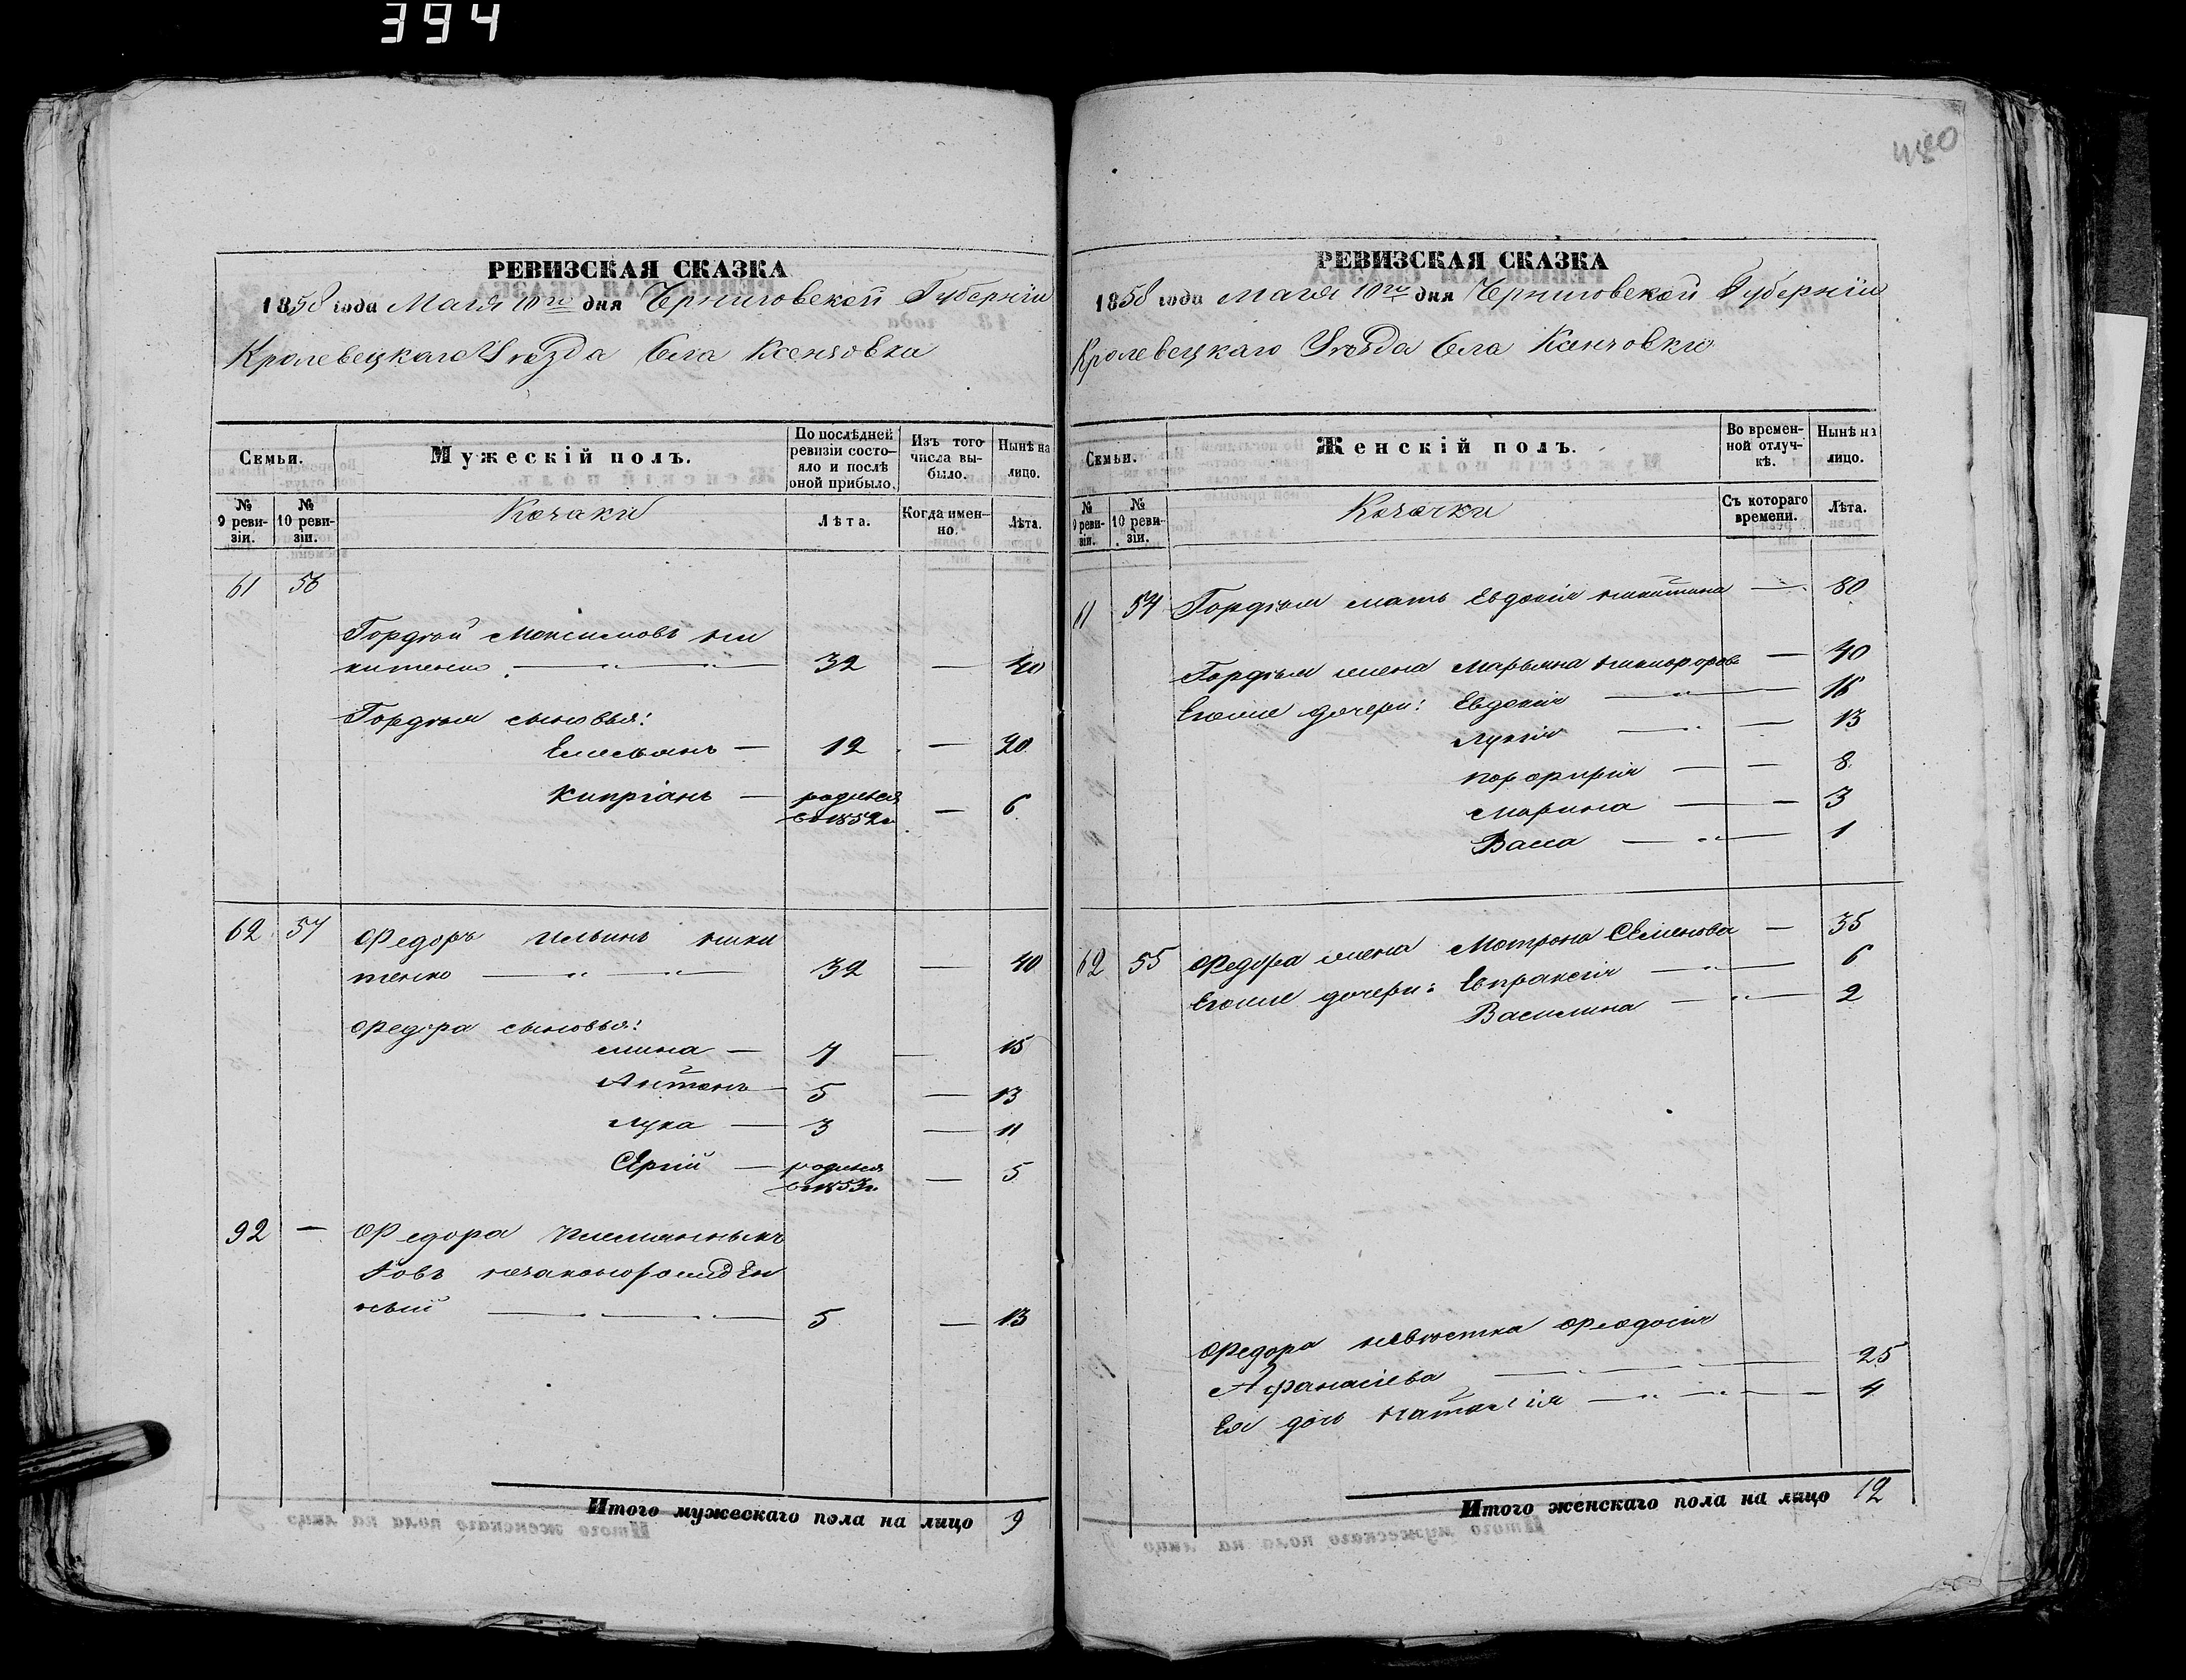 394
480
РЕВИЗСКАЯ СКАЗКА
1858 года Магя 10го дня Черниговской Губерніи
Кролевецкаго Уѣзда Села Ксензовки
Семьи.
Мужескій полъ.
По послѣдней ревизіи состояло и послѣ оной прибыло.
Изъ того числа выбыло.
Нынѣ на лицо.
№ 9 ревизіи.
№ 10 ревизіи.
Козаки
Лѣта.
Когда именно.
Лѣта.
61 56
Гордѣй Максимовъ Ни
китенко 32 — 40
Гордѣя сыновья:
Емельянъ — 12 — 20
Кипріанъ — родился въ 1852г. — 6
62 57 Федоръ Ильинъ Ники
тенко 32 — 40
Федора сыновья:
Мина — 7 — 15
Антонъ — 5 — 13
Лука — 3 — 11
Сергій — родился въ 1853г. — 5
92 — Федора племянникъ
Іовъ незаконорожден
ный 5 — 13
Итого мужескаго пола на лицо 9
РЕВИЗСКАЯ СКАЗКА
1858 года Магя 10го дня Черниговской Губерніи
Кролевецкаго Уѣзда Села Ксензовки
Семьи.
Женскій полъ.
Во временной отлучкѣ.
Нынѣ на лицо.
№ 9 ревизіи.
№ 10 ревизіи.
Козачки
Съ котораго времени.
Лѣта.
61 54 Гордѣя мать Евдокія Никитина — 80
Гордѣя жена Марьяна Никифорова — 40
Егоже дочери: Евдокія — 16
Лукія — 13
Порфирія — 8
Марина — 3
Васса — 1
62 55 Федора жена Мотрона Семенова — 35
Егоже дочери: Евпраксія — 6
Василина — 2
Федора невѣстка Феодосія
Афанасіева — 25
Ея дочь Наталія — 4
Итого женскаго пола на лицо 12